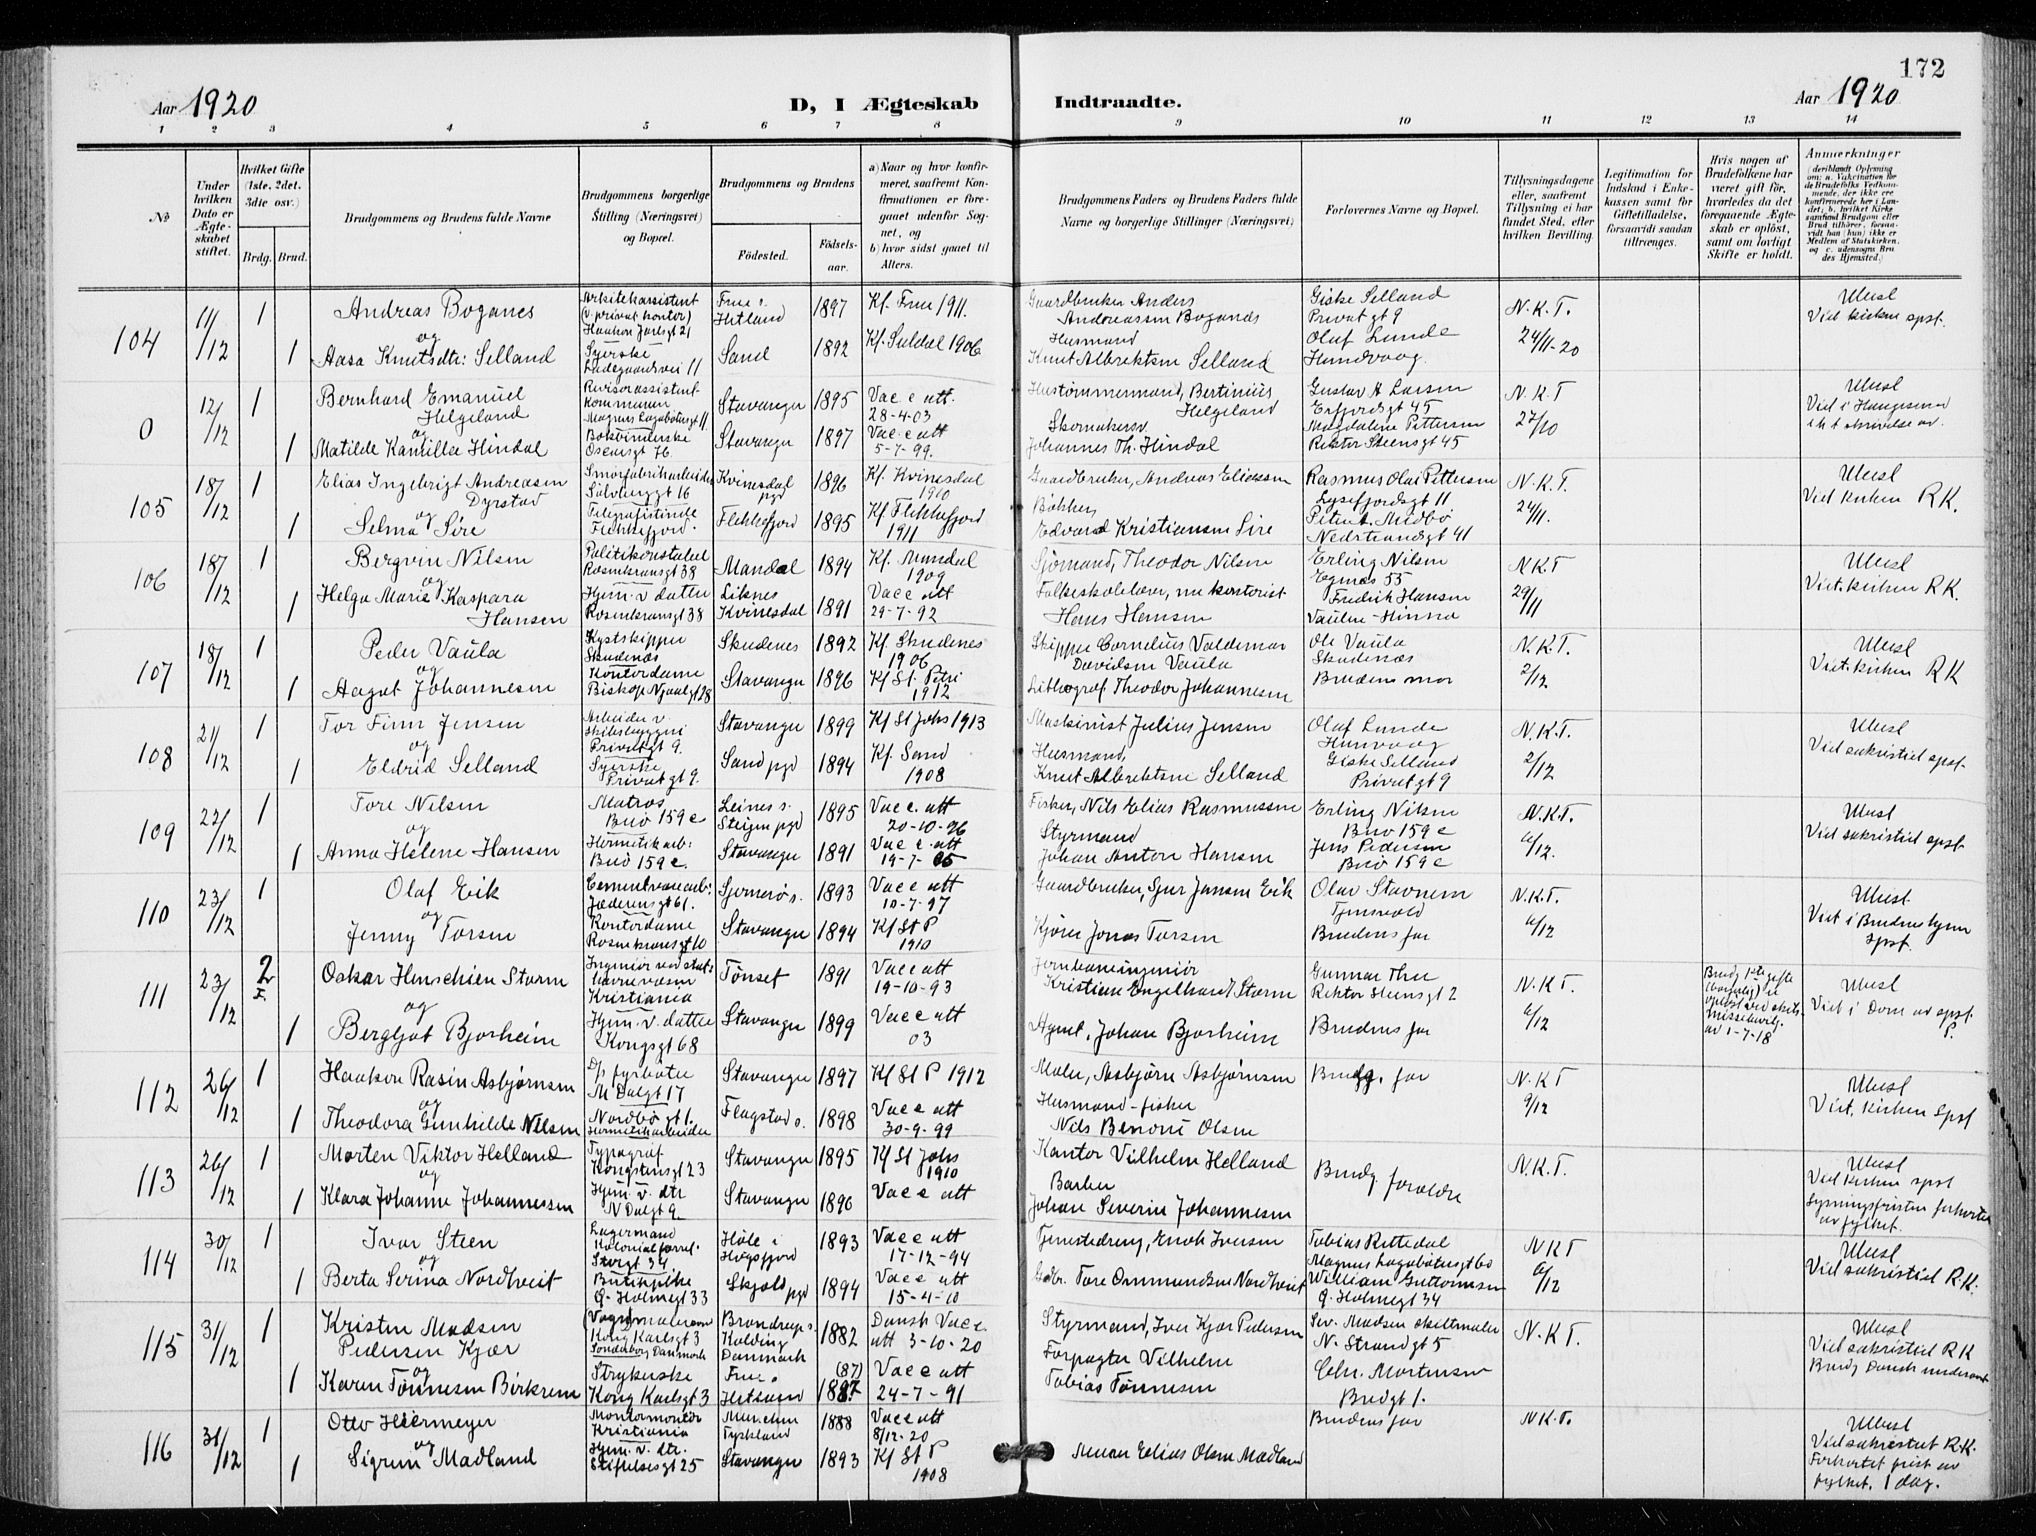 172
Aar 1920
D, I Ægteskab
Indtraadte.
Aar 1920
1 2 3 4 5 6 7 8 9 10 11 12 13 14
No
Under hvilken Dato er Ægteskabet stiftet.
Hvilket Gifte (1ste, 2det, 3die osv.)
Brdg. Brud.
Brudgommens og Brudens fulde Navne
Brudgommens borgerlige Stilling (Næringsvei) og Bopæl.
Brudgommens og Brudens
Födested.
Födselsaar.
a) Naar og hvor konfirmeret, saafremt Konfirmationen er foregaaet udenfor Sognet, og
b) hvor sidst gaaet til Alters.
Brudgommens Faders og Brudens Faders fulde Navne og borgerlige Stillinger (Næringsvei)
Forlovernes Navne og Bopæl.
Tillysningsdagene eller, saafremt Tillysning ei har fundet Sted, efter hvilken Bevilling.
Legitimation for Indskud i Enkekassen samt for Giftetilladelse, forsaavidt saadan tiltrænges.
Hvis nogen af Brudefolkene har været gift för, hvorledes da det foregaaende Ægteskab er oplöst, samt om lovligt Skifte er holdt.
Anmerkninger
104 11/12 1 Andreas Boganes
Haakon Jarlsgt 21
Frue s. Hetland 1897 Kf. Frue 1911.
Gaardbruker Anders Andreassen Boganes
Giske Selland Privatgt 9
N.K.T. 24/11-20
Ubesl Vid kirken spst.
og
1 Aasa Knutsdtr: Selland
Syerske Ladegaardsvei 11
Sand 1892 Kf. Suldal 1906
Husmand Knut Albrektsen Selland
Olaf Lunde Hundvaag.
0 12/12 1 Bernhard Emanuel Helgeland
Revisorassistent Kommunen
Stavanger 1895 Vacc att. 28-4-03
Bertinius Helgeland
Gustav A Larsen Erfjordsgt 45
N.K.T 27/10
Ubesl
og
1 Matilde Kamilla Hindal
Stavanger 1897 Vacc att 5-7-99.
Johannes Th. Hindal
Magdalene Pettersen Rektor Steensgt 45
105 18/12 1 Elias Ingebrigt Andreasen Dyrstad
Sölvberggt 16
Kvinesdal pgd 1896 Kf. Kvinesdal 1910
Gaardbruker, Andreas Eliassen
Rasmus Olai Pettersen Lysefjordsgt 11
N.K.T. 24/11.
Ubesl Vid kirken R K.
og
1 Selma Sire
Telegrafistinde Flekkefjord.
Flekkefjord 1895 Kf Flekkefjord 1911
Bökker, Edvard Kristiansen Sire
Midbö Nedstrandsgt 41
106 18/12 1 Bergvin Nilsen
Politikonstabel Rosenkransgt 38
Mandal 1894 Kf. Mandal 1909
Sjömand, Theodor Nilsen
Erling Nilsen Egenæs 55
N.K.T 29/11
Ubesl Viet. kirken R K.
og
1 Helga Marie Kaspara Hansen
Hjem. v. datter Rosenkransgt 38
Liknes Kvinesdal 1891 Vacc att 29-7-92
Folkeskolelærer, nu kontorist Hans Hansen
Fredrik Hansen Vaulen-Hinna
107 18/12 1 Peder Vaula
Kystskipper Skudenæs
Skudenes 1892 Kf. Skudenes 1906
Skipper Cornelius Valdemar Davidsen Vaula
Ole Vaula Skudenæs
N.K.T. 2/12
Ubesl Viet. kirken R K
og
1 Aagot Johannesen
Kontordame Biskop Njaalsgt 28
Stavanger 1896 Kf St. Petri 1912
Lithograf Theodor Johannesen
Brudens mor
108 21/12 1 Tor Finn Jensen
Arbeider v. skibsbyggeri Privatgt 9.
Stavanger 1899 Kf St Johs 1913
Maskinist Julius Jensen
Olaf Lunde Hundvaag
N.K.T. 2/12
Ubesl Vid sakristiet spst.
og
1 Eldrid Selland
Syerske Privatgt 9.
Sand pgd 1894 Kf. Sand 1908
Husmand, Knut Albrektsen Selland
Giske Selland Privatgt 9
109 22/12 1 Tore Nilsen
Matros Buö 159 c
Leines s. Steigen pgd 1895 Vacc. att 20-10-96
Fisker, Nils Elias Rasmussen
Erling Nilsen Buö 159 c
N.K.T. 6/12.
Ubesl Vid sakristiet spst.
og
1 Anna Helene Hansen
Hermetikarb: Buö 159 c.
Stavanger 1891 Vacc att 19-7-
Styrmand Johan Anton Hansen
Jens Pedersen Buö 159 c
110 23/12 1 Olaf Eik
Cementvarearb: Jæderensgt 61.
Sjernerö s. 1893 Vacc att 10-7-97
Gaardbruker, Sjur Jansen Eik
Olav Stavnem Tjensvold
N.K.T. 6/12
Ubesl. Viet i Brudens hjem spst.
og
1 Jenny Torsen
Kontordame Rosenkransgt 10
Stavanger 1894 Kf St P 1910
Kjörer Jonas Torsen
Brudens far
111 23/12 2 F. Oskar Henschien Storm
Ingeniör ved stat: havnevæsen Kristiania
Tönset 1891 Vacc att 19-10-93
Jernbaneingeniör Kristian Engelhardt Storm
Gunnar Thu Rektor Steensgt 2
N.K.T. 6/12
av 1-7-18
Ubesl Viet i Dom av spst. P.
og
1 Bergljot Bjorheim
Hjem. v. datter Kongsgt 68
Stavanger 1899 Vacc att 03
Agent, Johan Bjorheim
Brudens far
112 26/12 1 Haakon Rasin Asbjörnsen
D/s fyrböter M Dalgt 17
Stavanger 1897 Kf St P 1912
Maler, Asbjörn Asbjörnsen
Brudg. far
N.K.T 9/12
Ubesl Viet. kirken spst
og
1 Theodora Gunhilde Nilsen
Nordbögt 1. Hermetikarbeider
Flagstad s. 1898 Vacc att 30-9-99
Husmand-fisker Nils Benoni Olsen
113 26/12 1 Morten Viktor Helland
Typograf Kongstensgt 23
Stavanger 1895 Kf St Johs 1910
Kantor Vilhelm Helland
Brudg. foreldre
N.K.T.
Ubesl Vid kirken spst Lysningsfristen forkortet av fylket.
og
1 Klara Johanne Johannessen
Hjem. v. dtr N Dalgt 9
Stavanger 1896 Vacc att
Barber Johan Severin Johannesen
114 30/12 1 Ivar Steen
Lagermand Kolonialforret. Storgt 34
Höle i Högsfjord 1893 Vacc att 17-12-94
Tjenestedreng, Enok Iversen
Tobias Rettedal Magnus Lagabötersgt 60
N K T 6/12
Ubesl Vid sakristiet R K.
og
1 Berta Serina Nordtveit
G. Holmegt 33
Skjold pgd 1894 Vacc att 15-4-10
Gdbr. Tore Ommundsen Nordtveit
William Guttormsen G. Holmegt 34
115 31/12 1 Kristen Madsen Pedersen Kjær
Kong Karlsgt 3 Sönderborg Danmark
Brøndrup s. Kolding Danmark 1882 Dansk Vacc att 3-10-20
Styrmand, Iver Kjær Pedersen
Sev. Madsen skiltmaler N. Strandgt 5
N.K T.
Ubesl Vid sakristiet R K Brudg Dansk undersaat
og
1 Karen Tönnesen Birkrem
Strykerske Kong Karlsgt 3
Frue s. Hetland (87) 1887 Vacc att 24-7-91
Forpagter Vilhelm Tobias Tönnesen
Chr. Mortensen Bredgt 1.
116 31/12 1 Otto Heiermeyer
Kristiania
München Tyskland 1888 Vacc att 8/12-20
Brudens far
N K T.
Ubesl Vid sakristiet R.K. Forkortet frist av fylket. 1 dag.
og
1 Sigrun Madland
Hjem. v. dtr. Stiftelsesgt 25
Stavanger 1893 Kf St P 1908
Elias Olsen Madland